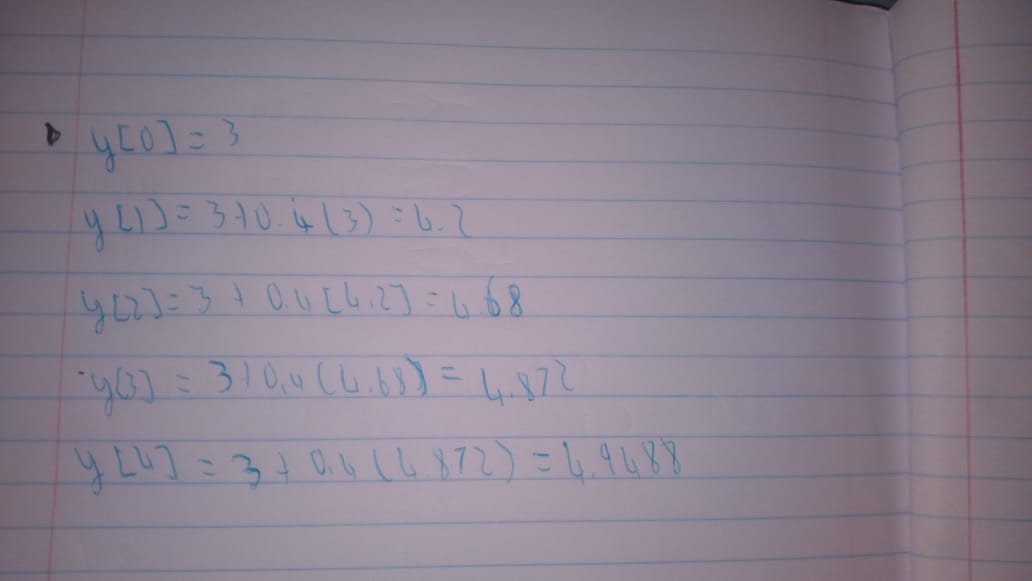 y[0] = 3
y[1] = 3+0.4(3) = 4.2
y[2] = 3 + 0.4[4.2] = 4.68
y[3] = 3+0.4(4.68) = 4.872
y[4] = 3+0.4(4.872) = 4.9488